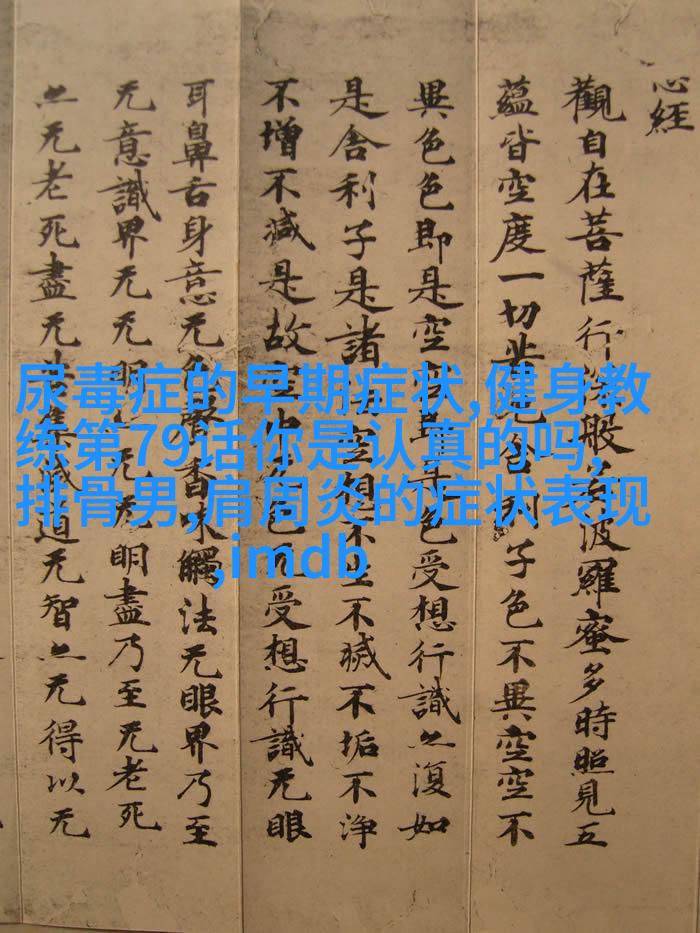 心經
觀自在菩薩行深般若波羅蜜多時照見五
蘊皆空度一切苦厄舍利子色不異空空不
異色色即是空空即是色受想行識亦復如
是舍利子是諸法空相不生不滅不垢不淨
不增不減是故空中无色无受想行識无眼
耳鼻舌身意无色聲香味觸法无眼界乃至
无意識界无无明亦无无明盡乃至无老死
亦无老死盡无苦集滅道无智亦无得以无
尿毒症的早期症状,健身教
练第79话你是认真的吗,
排骨男,肩周炎的症状表现
,imdb